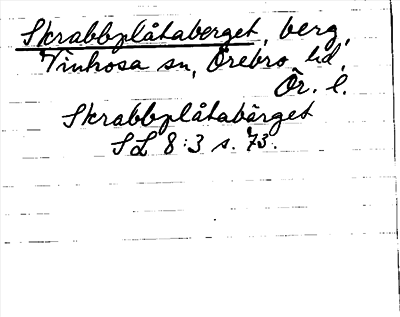 Skrabbplåtaberget, berg,
Vinhosa sn, Örebro hd,
Ör. l.
Skrabbplåtabärget
SL 8:3 s. 73.